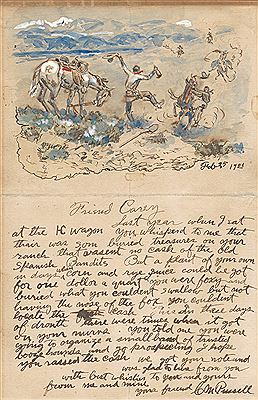 Feb 25 1921
Friend Carey
Last year when I eat
at the HC wagon you whispert to me that
thair was som buried treasures on your
ranch that wasent no cash of the old
Spanish Bandits But a plant of your own
in days Corn and rye juice could be got
for one dollar a quart you were foxy and
buried what you couldent swallow but not
having the nose of the fox you couldint
locate the cash in these days
of dront there were times when it got
on your nurvs you told me you were
going to organize a small band of trusted
booze hounds and go prospecting I hope
you raised the cash we got your note and
was glad to hear from you
with best wishes to you and yours
from me and mine
your friend CM Russell